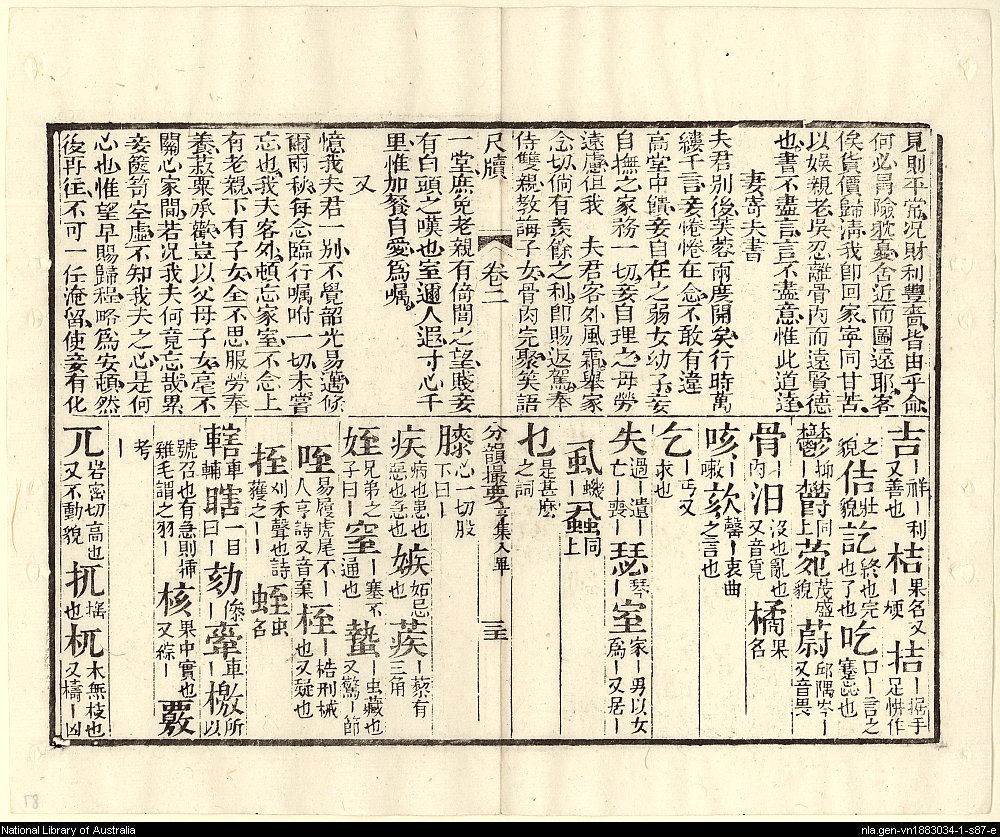 見則平常況財利豐嗇皆由乎命
何必冒險耽憂舍近而圖遠耶客
俟貨價歸淸我卽回家寧同甘苦
以娛親老吳忍離骨肉而遠賢德
也書不盡言言不盡意惟此道達
妻寄夫書
夫君別後芙蓉兩度開矣行時萬
縷千言妾惓惓在念不敢有違
高堂中饋妾自在之弱女幼子妾
自撫之家務一切妾自理之毋勞
遠慮但我 夫君客外風霜舉家
念切倘有羨餘之利卽賜返駕奉
侍雙親教誨子女骨肉完聚矣語
尺牘 卷二
一堂庶免老親有倚閭之望賤妾
有白頭之嘆也室邇人遐寸心千
里惟加餐自愛爲嘱
又
憶我夫君一別不覺韶光易邁候
爾兩秋每念臨行嘱咐一切未嘗
忘也我夫客外頓忘家室不念上
有老親下有子女全不思服勞奉
養菽粟承歡豈以父母子女毫不
關心家間若況我夫何竟忘哉累
妾篋笥空虛不知我夫之心是何
心也惟望早賜歸程略爲安頓然
後再往不可一任淹留使妾有化
吉 ー祥ー利又善也 桔 果名又ー梗 拮 ー据手足忙作
之貌 佶 壯貌 訖 終也完也了也 吃 口ー言之蹇ー也
鬱 抑ー 欝 同上 菀 茂盛貌 蔚 邱隅岑ー又音畏
骨 ー肉 汨 沒也亂也又音覓 橘 果名
咳 ー嗽 欬 謦ー衷曲之言也
乞 求也ー丐又
失 過ー遺ー亡ー喪ー 瑟 琴ー 室 家ー男以女爲ー又居ー
虱 ー蟣 蝨 同上
乜 是甚麽之詞
分韻撮要 亨集入畢 三五
膝 心ー一切股下曰ー
疾 病也患也惡也急也 嫉 妬忌也 蒺 ー藜有三角
姪 兄弟之子曰ー 窒 ー塞不通也 蟄 ー虫藏也又驚ー節
咥 易履虎尾不ー人亨詩又音棄 桎 ー梏刑械也又疑也
挃 刈禾聲也詩穫之ーー 蛭 虫名
轄 車ー輔ー 瞎 一目曰ー 劾 ー 舝 車ー 檄 所以
號召也有急則插雞毛謂之羽ー 核 果中實也又綜ー 覈
考ー
兀 岩崈切高也又不動貌 扤 搖也 杌 木無枝也又檮ー凶
58
National Library of Australia
nla.gen-vn1883034-1-s87-e